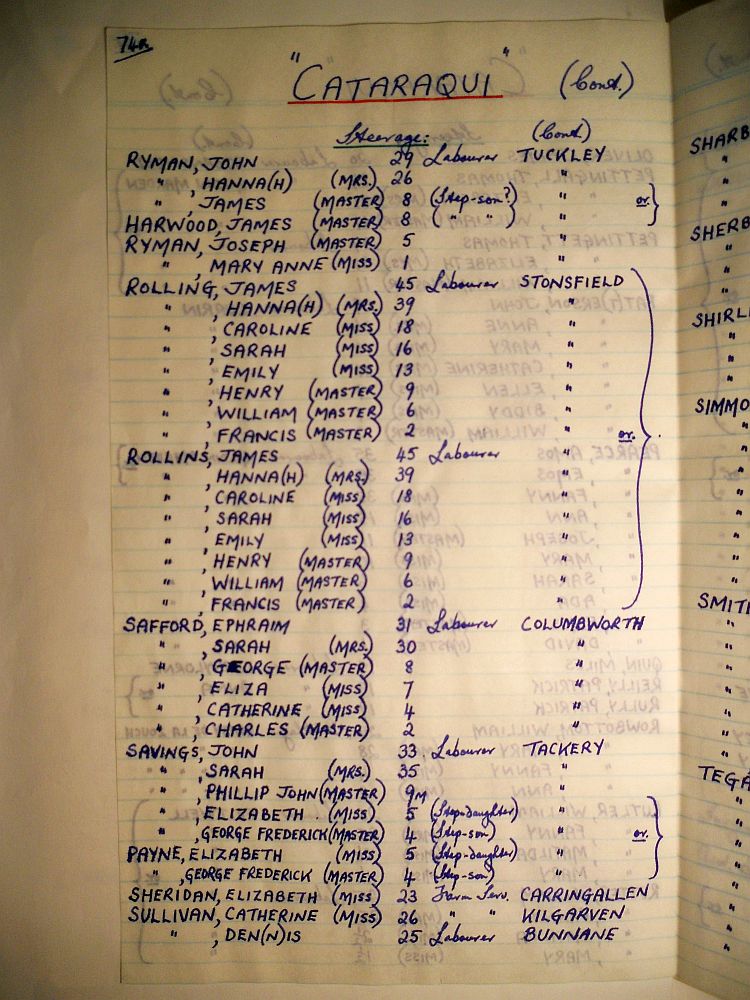 74a
"CATARAQUI" (Cont.)
Steerage: (Cont)
RYMAN, JOHN 29 Labourer TUCKLEY
" , HANNA(H) (MRS.) 26 "
" , JAMES (MASTER) 8 (Step-son?) " or.
HARWOOD, JAMES (MASTER) 8 ( " " ) "
RYMAN, JOSEPH (MASTER) 5 "
" , MARY ANNE (MISS) 1 "
ROLLING, JAMES 45 Labourer STONSFIELD
" , HANNA(H) (MRS.) 39 "
" , CAROLINE (MISS) 18 "
" , SARAH (MISS) 16 "
" , EMILY (MISS) 13 "
" , HENRY (MASTER) 9 "
" , WILLIAM (MASTER) 6 "
" , FRANCIS (MASTER) 2 " or.
ROLLINS, JAMES 45 Labourer "
" , HANNA(H) (MRS.) 39 "
" , CAROLINE (MISS) 18 "
" , SARAH (MISS) 16 "
" , EMILY (MISS) 13 "
" , HENRY (MASTER) 9 "
" , WILLIAM (MASTER) 6 "
" , FRANCIS (MASTER) 2 "
SAFFORD, EPHRAIM 31 Labourer COLUMBWORTH
" , SARAH (MRS.) 30 "
" , GEORGE (MASTER) 8 "
" , ELIZA (MISS) 7 "
" , CATHERINE (MISS) 4 "
" , CHARLES (MASTER) 2 "
SAVINGS, JOHN 33 Labourer TACKERY
" , SARAH (MRS.) 35 "
" , PHILLIP JOHN (MASTER) 9M "
" , ELIZABETH . (MISS) 5 (Step-daughter) "
" , GEORGE FREDERICK (MASTER) 4 (Step-son) " or.
PAYNE, ELIZABETH (MISS) 5 (Step-daughter) "
" , GEORGE FREDERICK (MASTER) 4 (Step-son) "
SHERIDAN, ELIZABETH (MISS) 23 Farm Serv. CARRINGALLEN
SULLIVAN, CATHERINE (MISS) 26 " " KILGARVEN
" , DEN(N)IS 25 Labourer BUNNANE
SHARB
"
"
SHERB
"
"
"
SHIRL
"
"
"
SIMMO
"
"
"
"
"
"
"
"
SMIT
"
"
"
"
"
"
"
TEGA
"
"
"
"
"
"
"